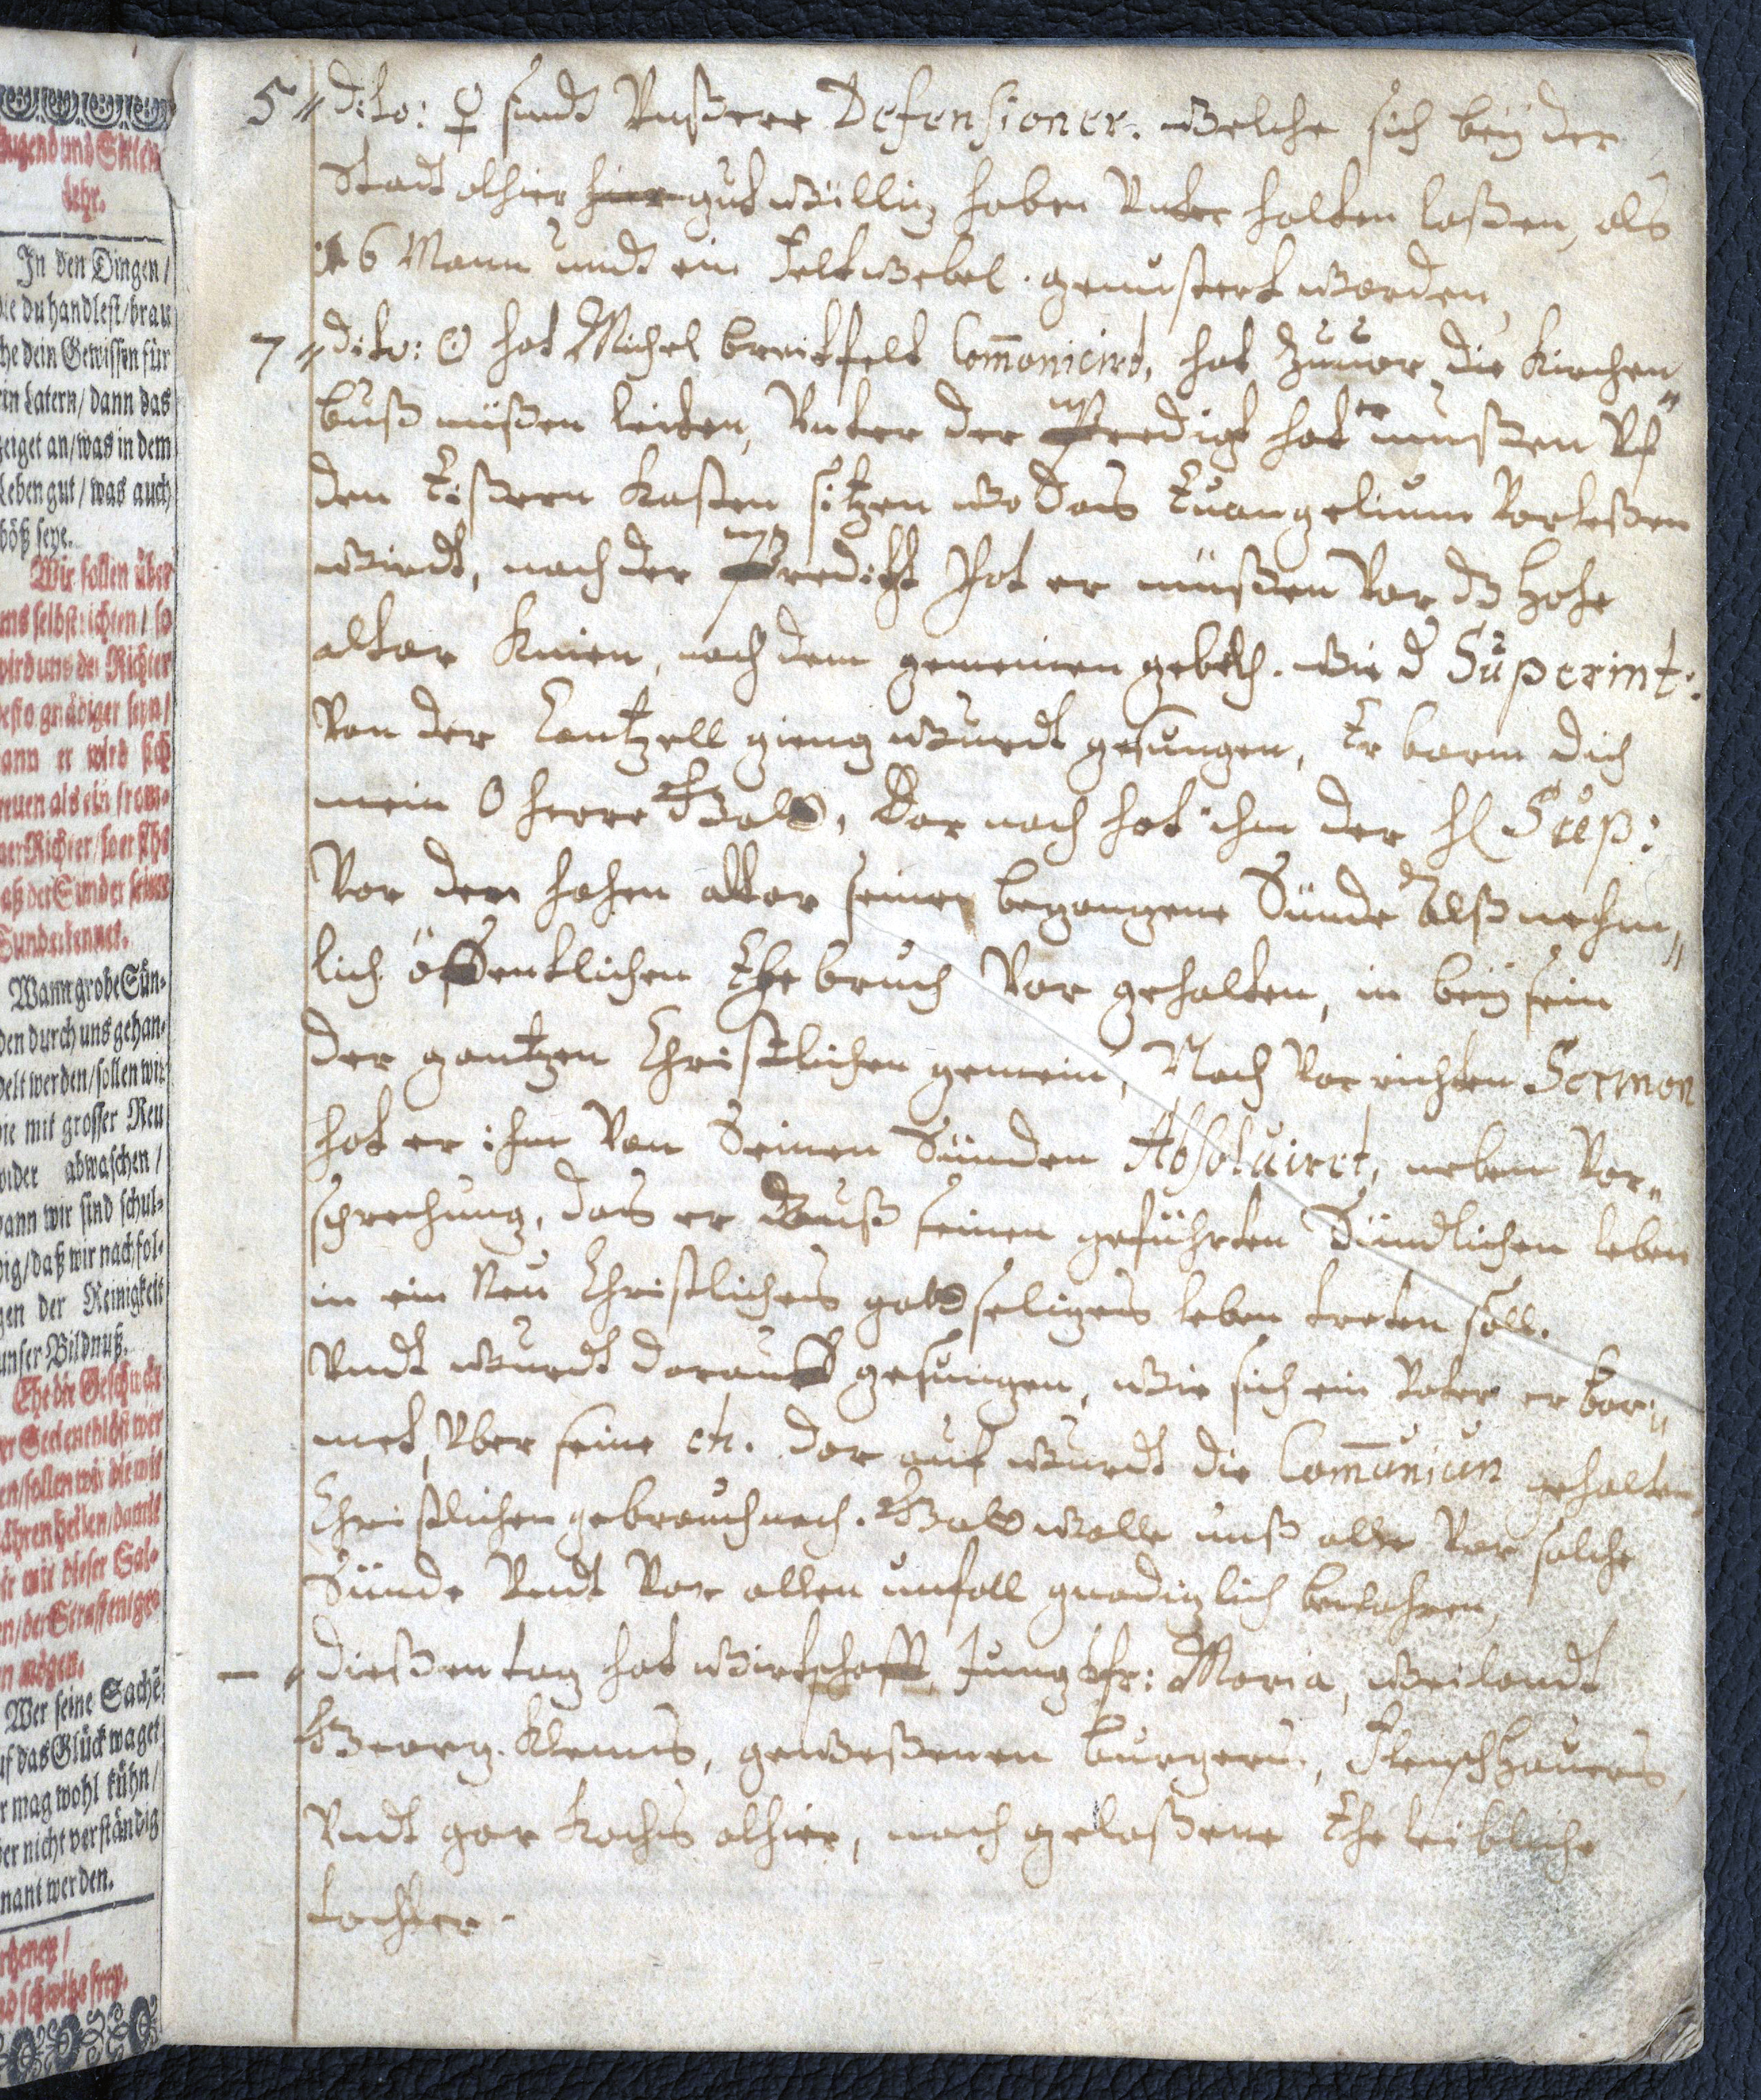 Tugend und Sitten
lehr.
In den Dingen/
die du handlest/brau
che dein Gewissen für
ein Latern/ dann das
zeiget an/was in dem
Leben gut/ was auch
böß seye.
Wir sollen über
uns selbst richten/ so
wird uns der Richter
desto gnädiger seyn/
dann er wird sich
freuen als ein from-
mer Richter/
daß der Sünder seine
Sünd erkennet.
Wann grobe Sün-
den durch uns gehan-
delt werden/sollen wir
die mit grosser Reu
wider abwaschen/
dann wir sind schul-
dig/daß wir nachfol-
gen der Reinigkeit
unser Bildnuß.
Ehe die Geschwär
der Seelen
sollen wir die mit
Zähren heilen/damit
wir mit dieser Sal-
ben/der Straff entge-
hen mögen.
Wer seine Sache
auf das Glück waget
der mag wohl kühn/
aber nicht verständig
genant werden.
5 „ dito: ♀ sindt Unßere Defensioner. welche sich beÿ der
Stadt alhier hier gutwüllig haben Unter halten laßen, als
16 Mann undt ein Feltwebel. gemustert worden,
7 „ dito: ☉ hat Michel breitfelt Com̄onicird, hat Zuuor die Kirchen„
buß müßen leiten, Unter der Predigt hat er müßen Uf
den Eißern Kasten sitzen wo das Euangelium Vorleßen
wirdt, nach der Predikt Hat er müßen Vor dz Hohe
altar Knien, nach dem gemeinen gebeth. wie d Superint:
Von der Cantzell gieng wurdt gesungen, Er barm dich
mein O herre Gott, Dar nach hat ihm der H Sup:
Vor dem hohen altar seine begangene Sünde Alß nehm„
lich öffentlichen Ehe bruch Vor gehalten, in beÿ sein
der gantzen Christlichen gemein, Nach Vorrichten Sermon
hat er ihm Von Seinen Sünden Absoluiret, neben Vor„
sprechung, das er Auß seinen geführten Sündlichen leben
in ein Neu Christliches gottseliges leben treten soll.
Undt wurdt darauff gesungen, wie sich ein Vater er bar„
met, Uber seine etc. dar auf wurdt die Com̄union gehalten,
Christlichen gebrauch nach. Gott wolle unß alle Vor solche
Sünde Undt Vor allen unfall gnadiglich bewahren,
– „ dießen tag hat wirtschafft Jungkfr: Maria, weilandt
Georg. Klemns, geweßenen burgers, Fleischhauers,
Undt gar Kochs alhier, nach gelaßene Ehe leibliche
tochter.